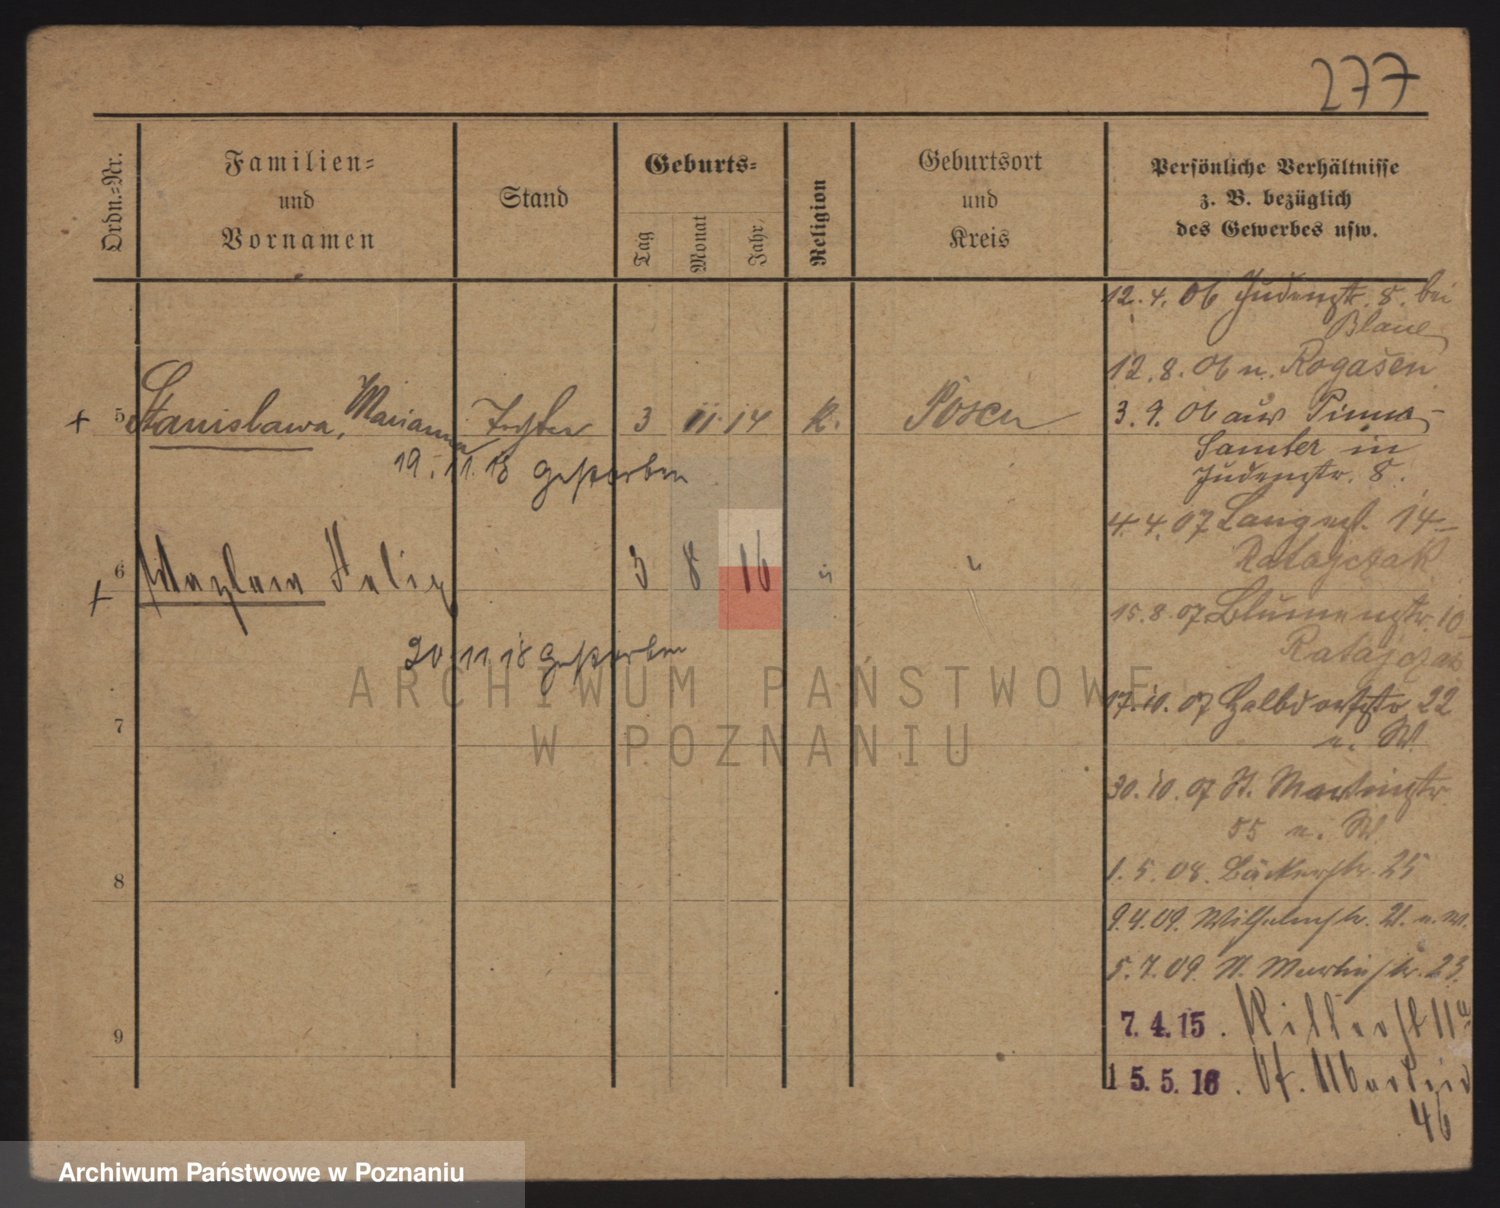 277
Ordn.-Nr.
Familien-
und
Vornamen
Stand
Geburts-
Tag
Monat
Jahr
Religion
Geburtsort
und
Kreis
Persönliche Verhältnisse
z. B. bezüglich
des Gewerbes usw.
12.4.06 Judenstr. 8. bei
Blaue
12.8.06 n. Rogasen
+ 5 Stanislawa, Marianna Tochter 3 11 14 K. Posen
19.11.18 gestorben
3.9.06 aus Pinne
Samter in
Judenstr. 8.
4.4.07 Langestr. 14
Ratajczak
+ 6 Felix 3 8 16 " "
20.11.18 gestorben
15.8.07 Blumenstr. 10
Ratajczak
7
17.10.07 Halbdorfstr 22
n. W.
30.10.07 St. Martinstr
55 n. W.
8
1.5.08. Bäckerstr. 25
9.4.09. Wilhelmstr. 21. n. W.
5.7.09. St. Martinstr. 23
9
7.4.15. Ritterst 11a
15.5.16. St. Martin
46
ARCHIWUM PAŃSTWOWE
W POZNANIU
Archiwum Państwowe w Poznaniu